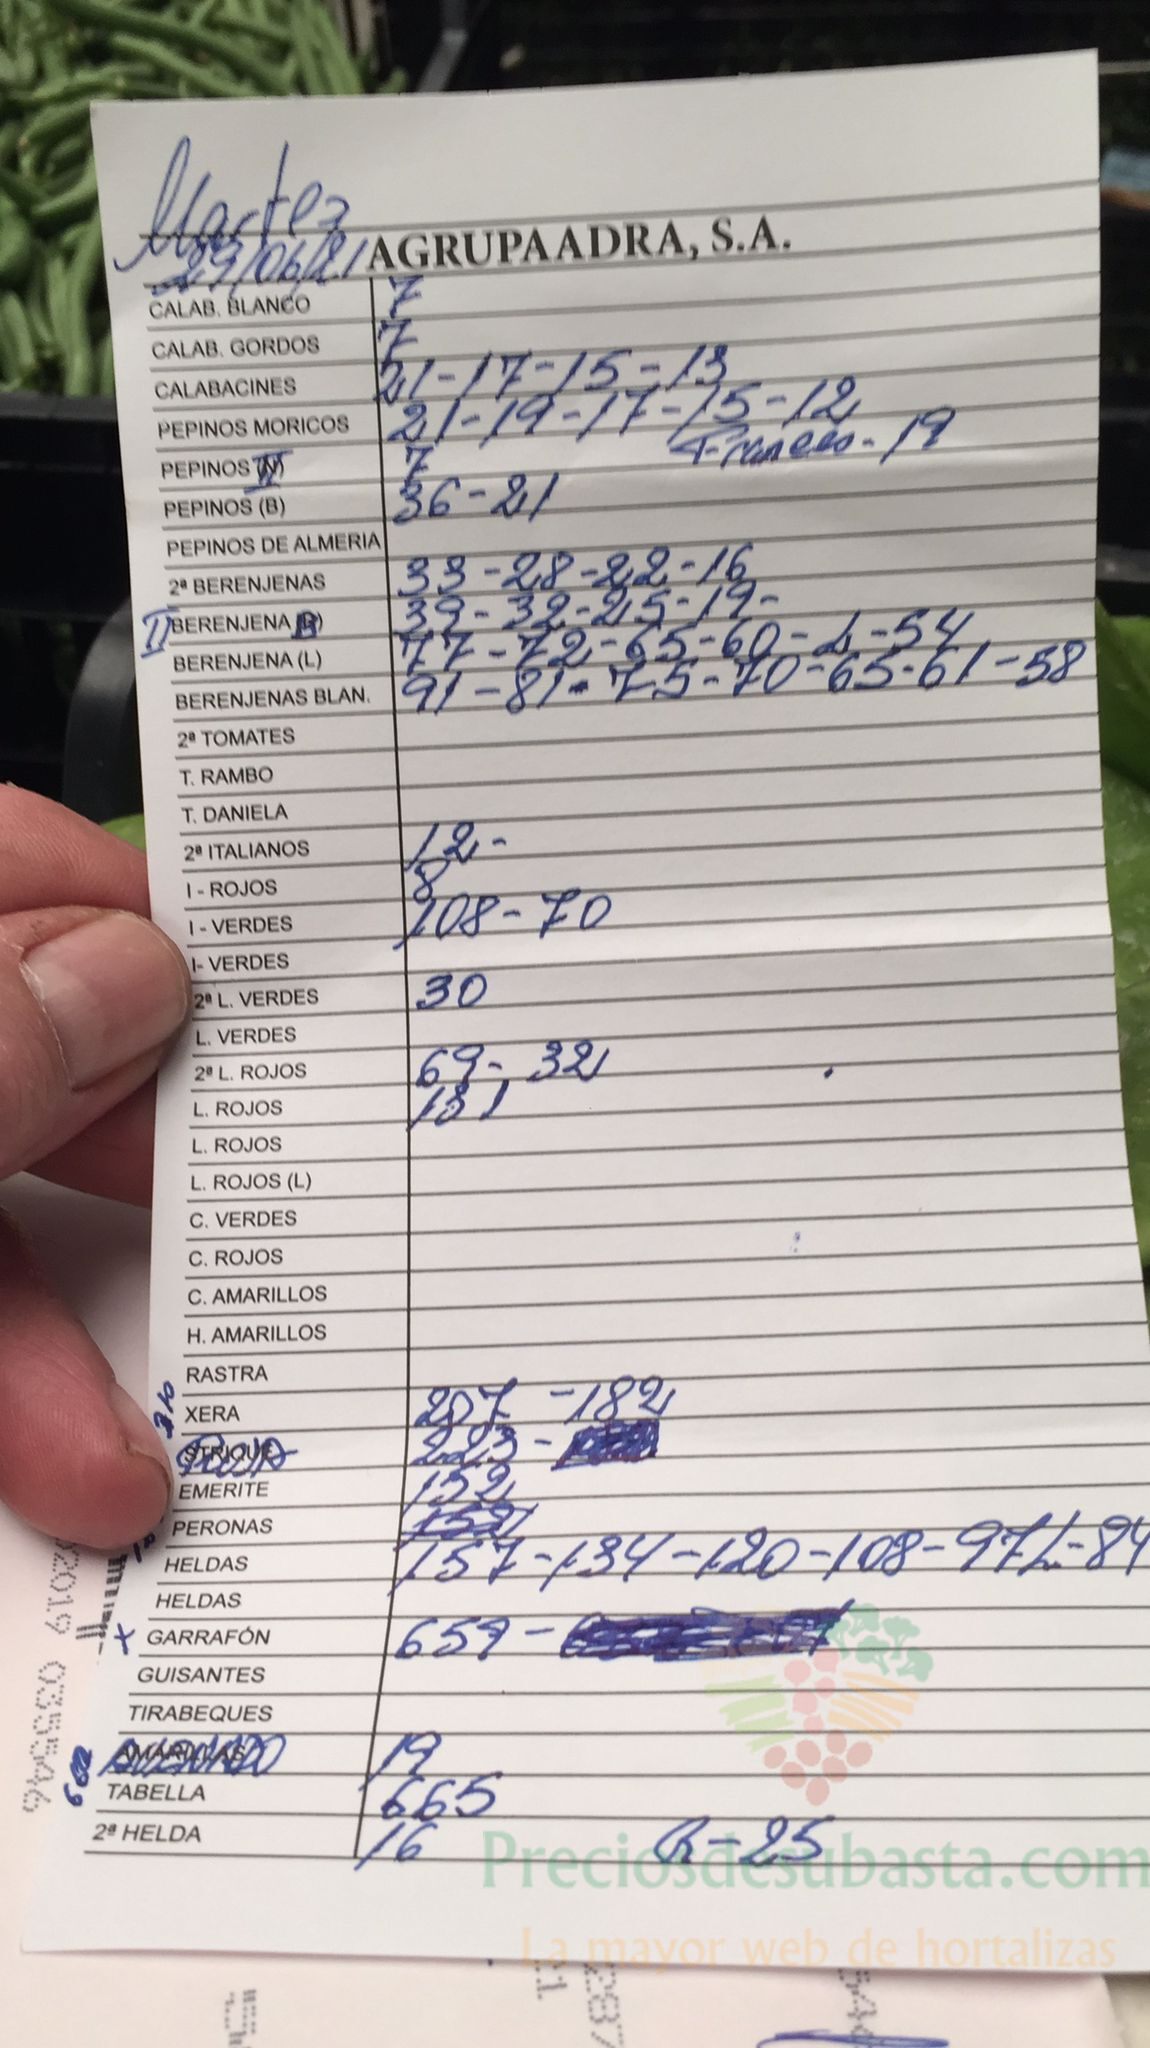 Martes
29/06/21 AGRUPAADRA, S.A.
CALAB. BLANCO 7
CALAB. GORDOS 7
CALABACINES 21-17-15-13
PEPINOS MORICOS 21-19-17-15-12
PEPINOS II 7 Frances-19
PEPINOS (B) 36-21
PEPINOS DE ALMERIA
2ª BERENJENAS 33-28-22-16
II BERENJENA 39-32-25-19-
BERENJENA (L) 77-72-65-60-L-54
BERENJENAS BLAN. 91-81-75-70-65-61-58
2ª TOMATES
T. RAMBO
T. DANIELA
2ª ITALIANOS 12-
I - ROJOS 8
I - VERDES 108-70
I- VERDES
2ª L. VERDES 30
L. VERDES
2ª L. ROJOS 69-32
L. ROJOS 131
L. ROJOS
L. ROJOS (L)
C. VERDES
C. ROJOS
C. AMARILLOS
H. AMARILLOS
RASTRA
XERA 207-182
STRIQUE 223-
EMERITE 152
PERONAS 152
HELDAS 157-134-120-108-97L-84
HELDAS
+ GARRAFÓN 659-
GUISANTES
TIRABEQUES
AMARILLAS 19
TABELLA 665
2ª HELDA 16 R-25
Preciosdesubasta.com
La mayor web de hortalizas
035546